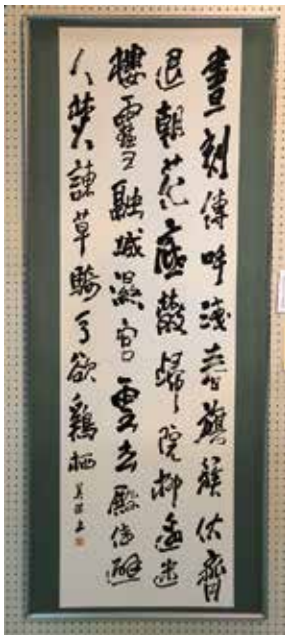 晝刻傳呼淺春旗簇仗齊
退朝花底散歸院柳邊迷
樓雪融城濕宮雲去殿低避
人焚諫草騎馬欲鷄栖